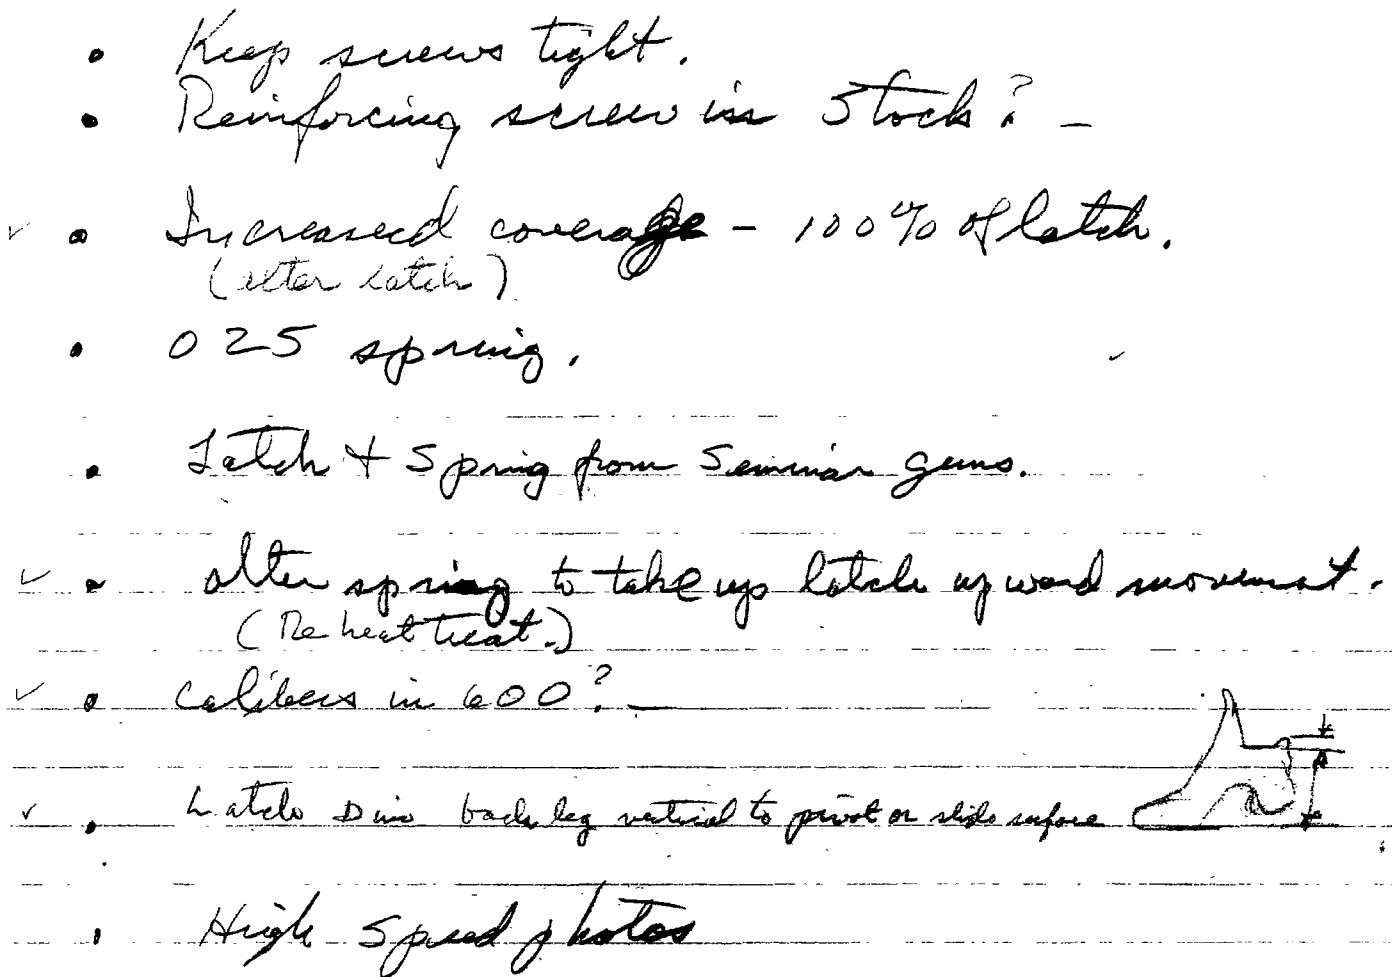 • Keep screws tight.
• Reinforcing screw in Stock? -
✓ • Increased coverage - 100% of latch.
(alter latch)
• 025 spring.
• Latch + Spring from Seminar guns.
✓ • alter spring to take up latch upward movement.
(Re heat treat.)
✓ • Calibers in 600? -
✓ • Latch Dim back leg vertical to pivot or slide surface
• High Speed photos